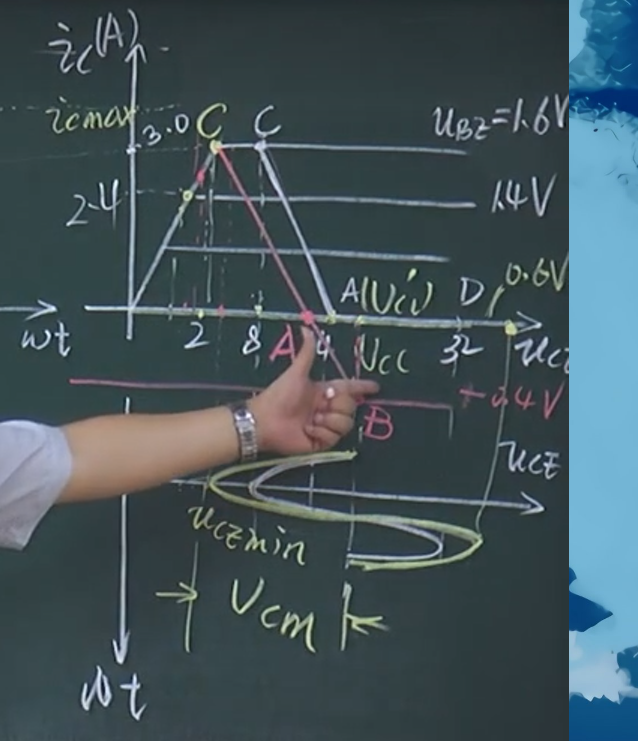 ic(A)
icmax 3.0 C C uBZ=1.6V
2.4 1.4V
A(Vcc') D 0.6V
ωt 2 8 A 14 Vcc 32 uCZ
-0.4V
B
uCZ
uCZmin
Vcm
ωt